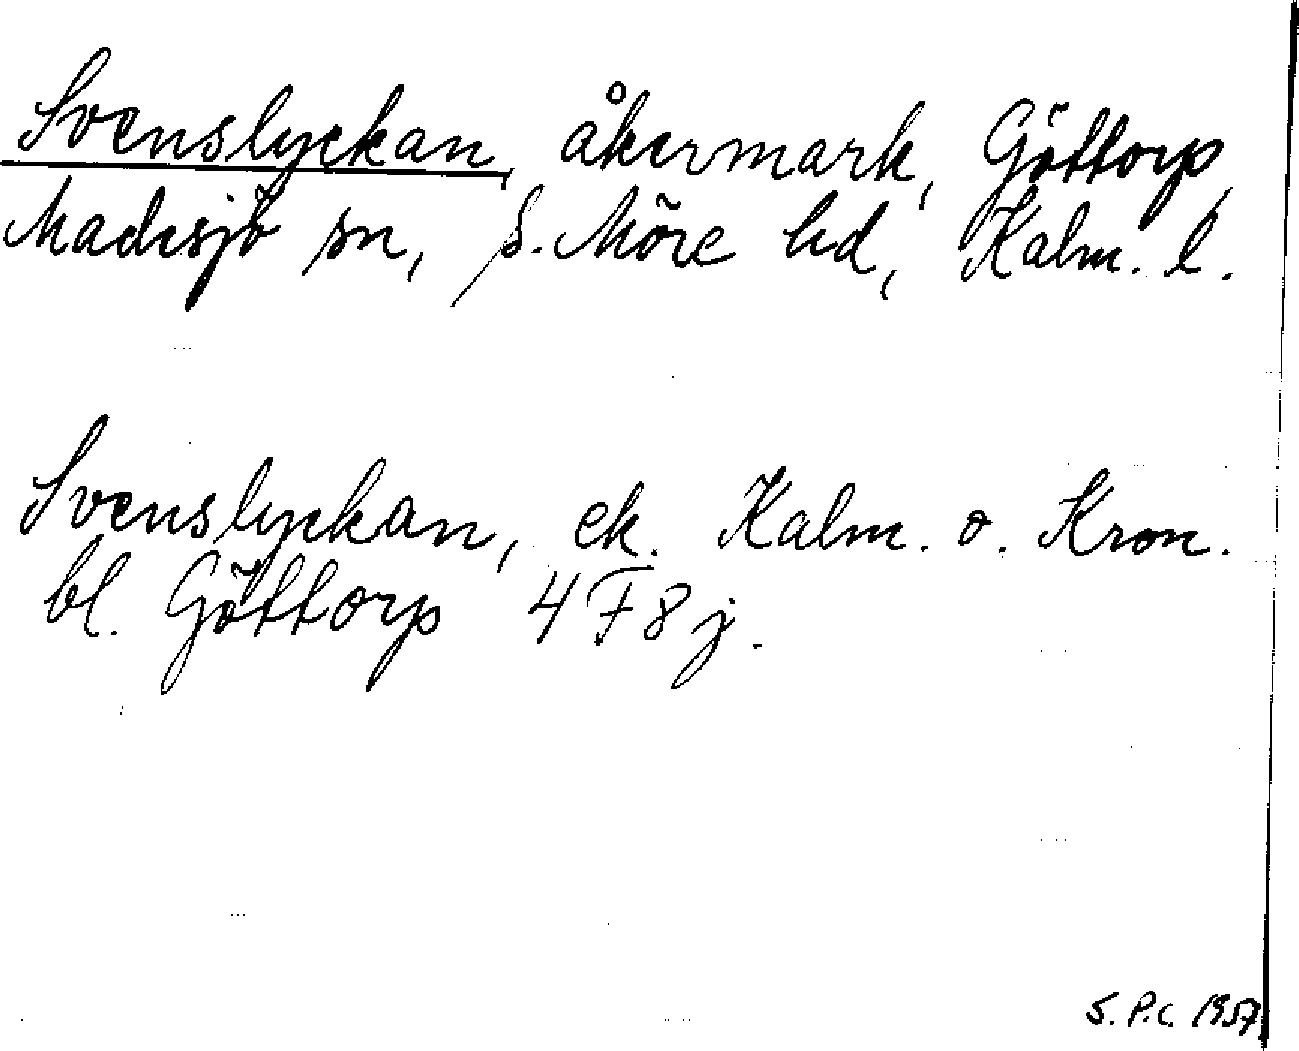 Svenslyckan, åkermark, Göttorp,
Madesjö sn, S. Möre hd, Kalm. l.
Svenslyckan, ek. Kalm. o. Kron.
bl. Göttorp 4 F 8 j.
S.P.C. 1957